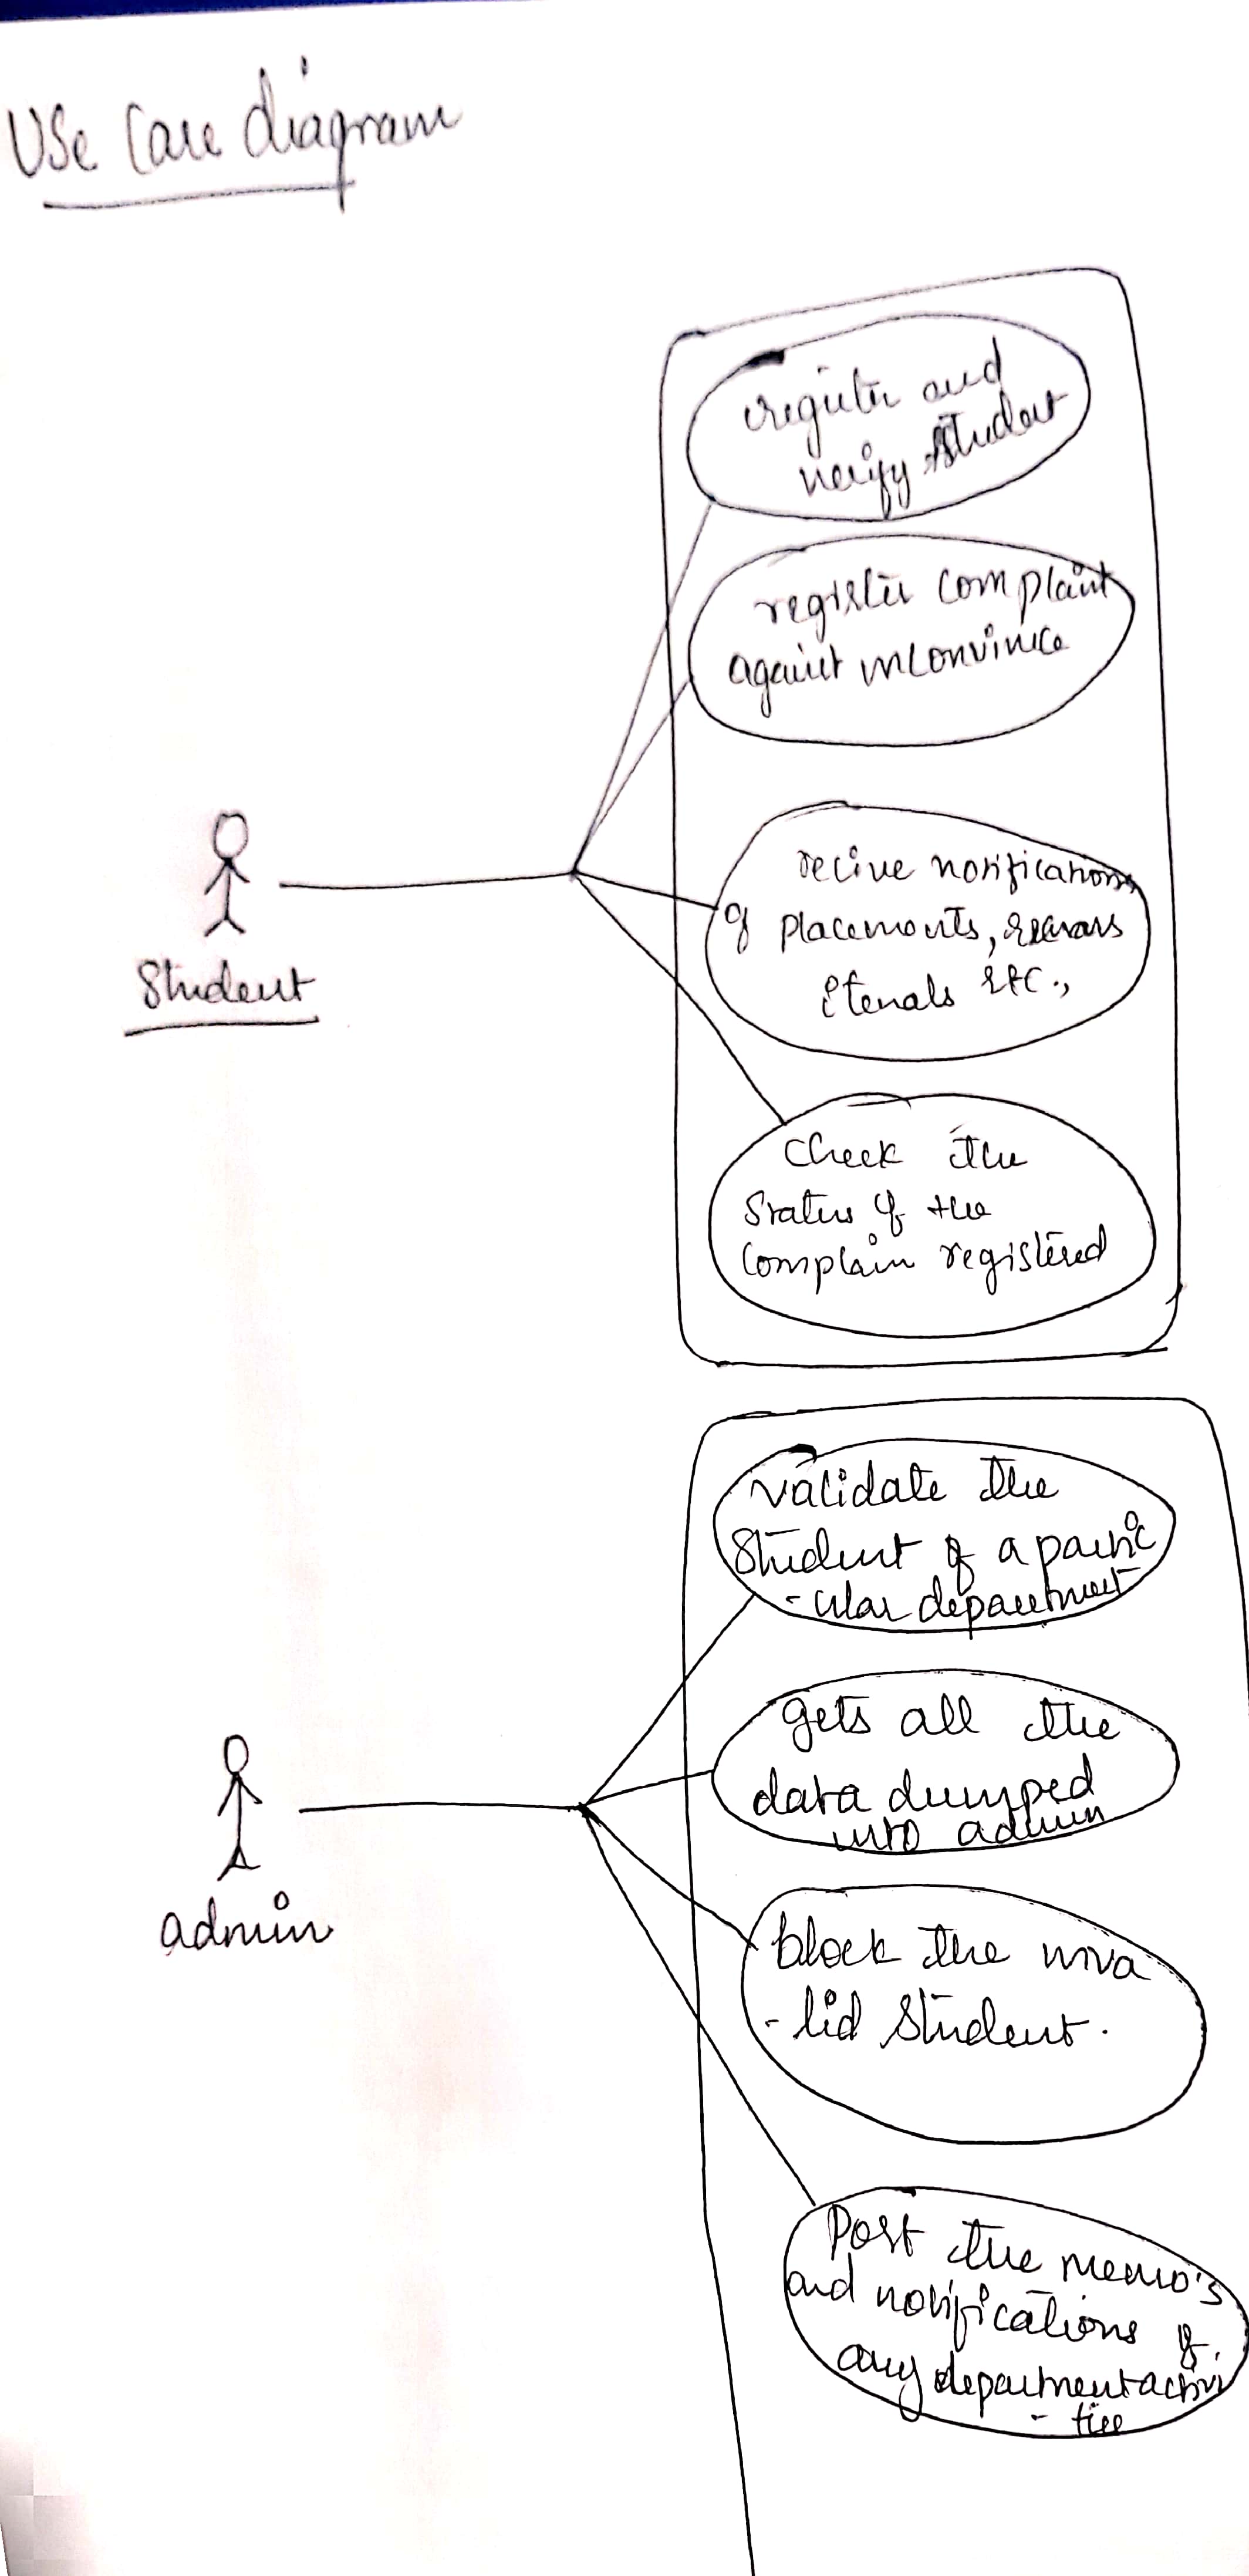 Use Case diagram
register and
verify student
register complaint
against inconvinice
recive notifications
of placements,
etenals etc.,
check the
status of the
complain registered
Student
validate the
student of a partic
- ular department
gets all the
data dumped
into admin
block the inva
- lid student.
Post the memo's
and notifications of
any department activi
- ties
admin